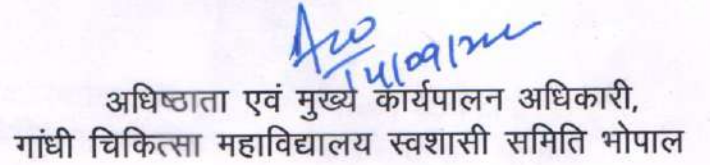 अधिष्ठाता एवं मुख्य कार्यपालन अधिकारी,
गांधी चिकित्सा महाविद्यालय स्वशासी समिति भोपाल